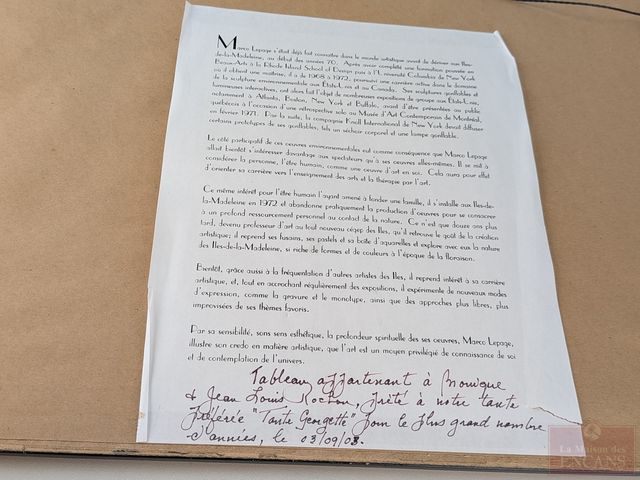 Marco Lepage s'était déjà fait connaître dans le monde artistique avant de dériver aux Iles-
de-la-Madeleine, au début des années 70. Après avoir complété une formation poussée en
Beaux-Arts à la Rhode Island School of Design puis à l'Université Columbia de New York
où il obtient une maîtrise, il a de 1968 à 1972, poursuivi une carrière active dans le domaine
de la sculpture environnementale aux États-Unis et au Canada. Ses sculptures gonflables et
lumineuses interactives, ont alors fait l'objet de nombreuses expositions de groupe aux États-Unis,
notamment à Atlanta, Boston, New York et Buffalo, avant d'être présentées au public
québécois à l'occasion d'une rétrospective solo au Musée d'Art Contemporain de Montréal,
en février 1971. Par la suite, la compagnie Knoll International de New York devait diffuser
certains prototypes de ses gonflables, tels un séchoir corporel et une lampe gonflable.
Le côté participatif de ces oeuvres environnementales eut comme conséquence que Marco Lepage
allait bientôt s'intéresser davantage aux spectateurs qu'à ses oeuvres elles-mêmes. Il se mit à
considérer la personne, l'être humain, comme une oeuvre d'art en soi. Cela aura pour effet
d'orienter sa carrière vers l'enseignement des arts et la thérapie par l'art.
Ce même intérêt pour l'être humain l'ayant amené à fonder une famille, il s'installe aux Iles-de-
la-Madeleine en 1972 et abandonne pratiquement la production d'oeuvres pour se consacrer
à un profond ressourcement personnel au contact de la nature. Ce n'est que douze ans plus
tard, devenu professeur d'art au tout nouveau cégep des Iles, qu'il retrouve le goût de la création
artistique; il reprend ses fusains, ses pastels et sa boîte d'aquarelles et explore avec eux la nature
des Iles-de-la-Madeleine, si riche de formes et de couleurs à l'époque de la floraison.
Bientôt, grâce aussi à la fréquentation d'autres artistes des Iles, il reprend intérêt à sa carrière
artistique, et, tout en accrochant régulièrement des expositions, il expérimente de nouveaux modes
d'expression, comme la gravure et le monotype, ainsi que des approches plus libres, plus
improvisées de ses thèmes favoris.
Par sa sensibilité, sons sens esthétique, la profondeur spirituelle des ses oeuvres, Marco Lepage,
illustre son credo en matière artistique, que l'art est un moyen privilégié de connaissance de soi
et de contemplation de l'univers.
Tableau appartenant à Monique
& Jean Louis Rochon, prêté à notre tante
préférée "Tante Georgette" pour le plus grand nombre
d'années, le 03/09/03.
La Maison des
ENCANS